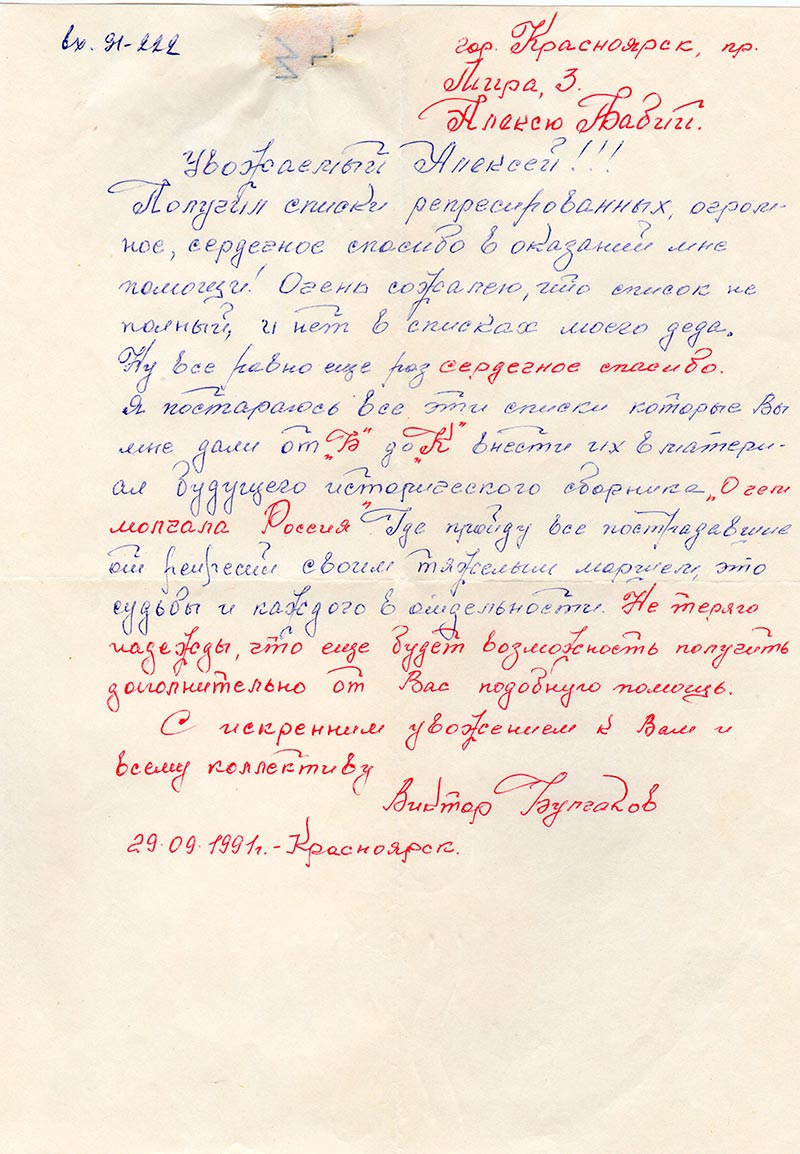 вх. 91-222
гор. Красноярск, пр.
Мира, 3.
Алексю Бабий.
Уважаемый Алексей!!!
Получил списки репресированных, огром-
ное, сердечное спасибо в оказаний мне
помощи! Очень сожалею, что список не
полный, и нет в списках моего деда.
Ну все равно еще раз сердечное спасибо.
Я постараюсь все эти списки которые Вы
мне дали от „Б" до „К" внести их в матери-
ал будущего исторического сборника „О чем
молчала Россия" Где пройду все пострадавшие
от репресий своим тяжелым маршем, это
судьбы и каждого в отдельности. Не теряю
надежды, что еще будет возможность получить
дополнительно от Вас подобную помощь.
С искренним уважением к Вам и
всему коллективу
Виктор Булгаков
29.09.1991г.-Красноярск.